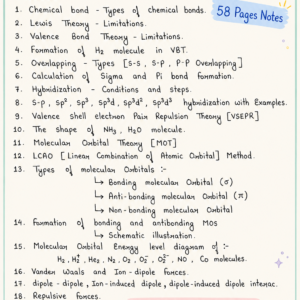 58 Pages Notes
1. Chemical bond - Types of chemical bonds.
2. Lewis Theory - Limitations.
3. Valence Bond Theory - Limitations.
4. Formation of H₂ molecule in VBT.
5. Overlapping - Types [S-S, S-P, P-P Overlapping]
6. Calculation of Sigma and Pi bond formation.
7. Hybridization - Conditions and steps.
8. S-p, Sp², Sp³, Sp³d, Sp³d², Sp³d³ hybridization with Examples.
9. Valence shell electron Pair Repulsion Theory [VSEPR]
10. The shape of NH₃, H₂O molecule.
11. Molecular Orbital Theory [MOT]
12. LCAO [Linear Combination of Atomic Orbital] Method.
13. Types of molecular Orbitals :-
↳ Bonding molecular Orbital (σ)
↳ Anti-bonding molecular Orbital (π)
↳ Non-bonding molecular Orbital
14. Formation of bonding and antibonding MOs
↳ Schematic illustration.
15. Molecular Orbital Energy level diagram of :-
H₂, H₂⁺, He₂, N₂, O₂, O₂⁻, O₂²⁻, NO, Co molecules.
16. Vanden Waals and Ion-dipole forces.
17. dipole-dipole, Ion-induced dipole, dipole-induced dipole interac.
18. Repulsive Forces.